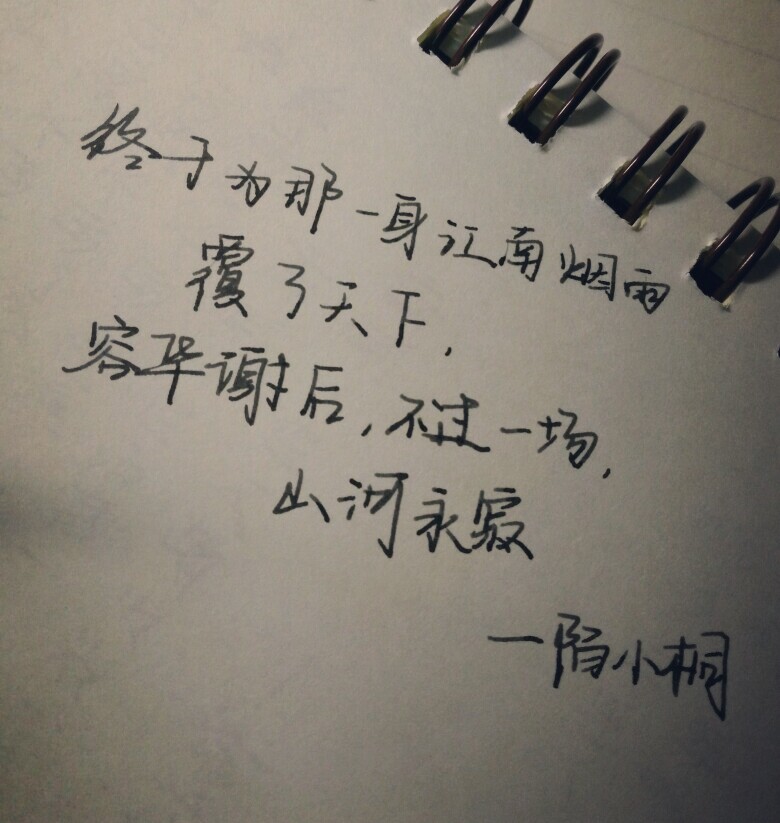 终于为那一身江南烟雨
覆了天下,
容华谢后,不过一场,
山河永寂
—陌小桐